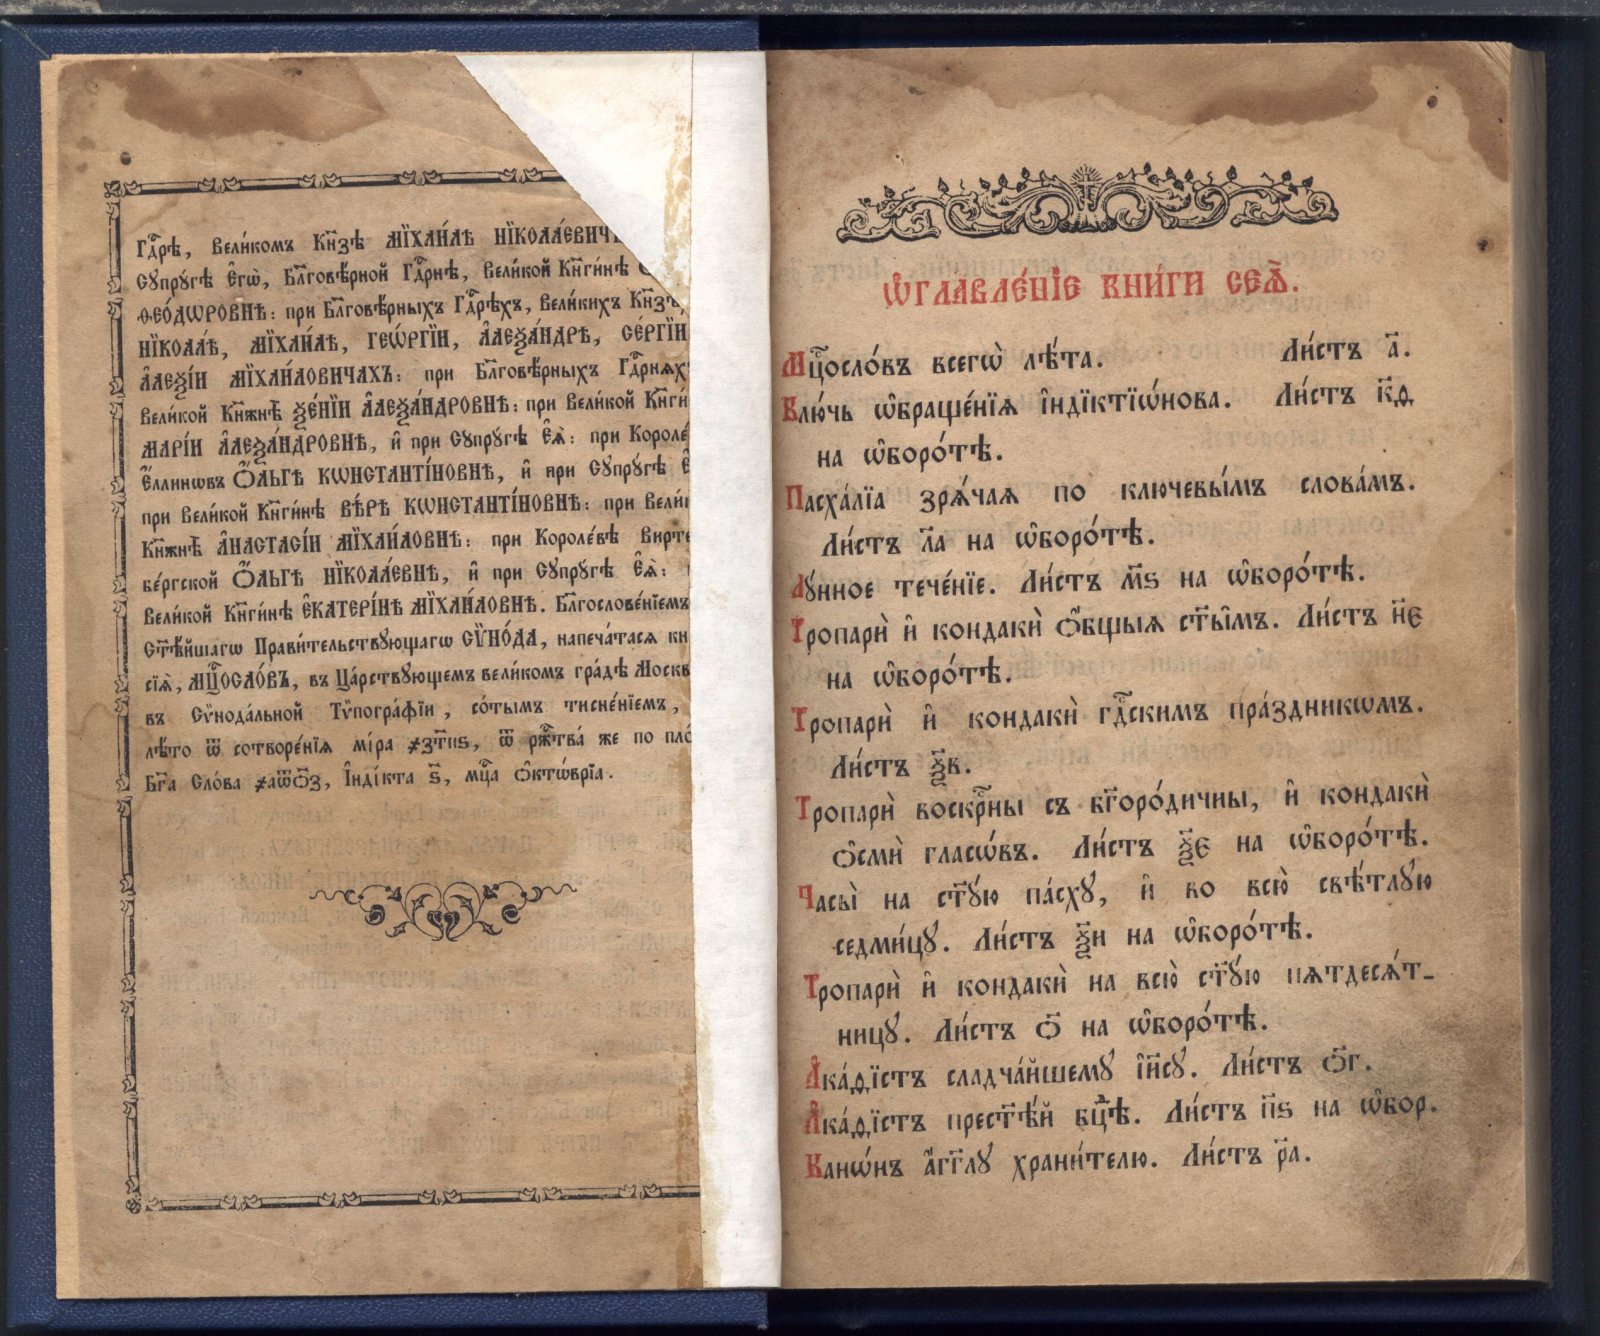 Гдⷭ҇рѣ, Вели́комъ Кн҃зѣ МЇХАИ́ЛѢ НЇКОЛА́ЕВИЧѢ
Сꙋпрꙋ́гѣ Е҆гѡ̀, Бл҃говѣ́рной Гдⷭ҇рнѣ, Вели́кой Кн҃ги́нѣ
ѲЕО́ДѠРОВНѢ: при Бл҃говѣ́рныхъ Гдⷭ҇рѣхъ, Вели́кихъ Кн҃зѣ
НЇКОЛА́Ѣ, МЇХАИ́ЛѢ, ГЕѠ́РГЇИ, А҆ЛЕѮА́НДРѢ, СЕ́РГЇИ
А҆ЛЕѮІ́И МЇХАИ́ЛОВИЧАХЪ: при Бл҃говѣ́рныхъ Гдⷭ҇рняхъ
Вели́кой Кн҃жнѣ̀ Ѯе́нїи А҆ЛЕѮА́НДРОВНѢ: при Вели́кой Кн҃ги́
МАРІ́И А҆ЛЕѮА́НДРОВНѢ, и҆ при Сꙋпрꙋ́гѣ Е҆ѧ̀: при Короле́
Е҆́ллинѡвъ Ѻ҆́ЛЬГѢ КѠНСТАНТІ́НОВНѢ, и҆ при Сꙋпрꙋ́гѣ
при Вели́кой Кн҃ги́нѣ ВѢ́РѢ КѠНСТАНТІ́НОВНѢ: при Вели́
Кн҃жнѣ̀ А҆НАСТАСІ́И МЇХАИ́ЛОВНѢ: при Короле́вѣ Вирте
бе́ргской Ѻ҆́ЛЬГѢ НЇКОЛА́ЕВНѢ, и҆ при Сꙋпрꙋ́гѣ Е҆ѧ̀:
Вели́кой Кн҃ги́нѣ Е҆КАТЕРІ́НѢ МЇХАИ́ЛОВНѢ. Бл҃гослове́нїемъ
Ст҃ѣ́йшагѡ Прави́тельствꙋющагѡ СѴ҆НО́ДА, напеча́тасѧ кн
сїѧ̀, МЦⷭ҇ОСЛО́ВЪ, въ Ца́рствꙋющемъ вели́комъ гра́дѣ Москв
въ Сѷнода́льной Тѷпогра́фїи, со́тымъ тисне́нїемъ,
лѣ́то ѿ сотворе́нїѧ мі́ра ҂зт҃пѕ, ѿ рж҇ⷭтва́ же по пло́
Бг҃а Сло́ва ҂аѿ҃ѻз, І҆ндї́кта ѕ҃, мцⷭ҇а ѻ҆ктѡ́врїа.
Ѡ҆ГЛАВЛЕ́НІЕ КНИ́ГИ СЕѦ̀.
Мцⷭ҇осло́въ всегѡ̀ лѣ́та. Ли́стъ а҃.
Клю́чь ѡ҆браще́нїѧ і҆ндїктїѡ́нова. Ли́стъ к҃ѳ
на ѡ҆боро́тѣ.
Пасха́лїа зрѧ́чаѧ по ключевы́мъ слова́мъ.
Ли́стъ л҃а на ѡ҆боро́тѣ.
Лꙋ́нное тече́нїе. Ли́стъ м҃ѕ на ѡ҆боро́тѣ.
Тропарѝ и҆ кондакѝ ѻ҆́бщыѧ ст҃ы̑мъ. Ли́стъ н҃є
на ѡ҆боро́тѣ.
Тропарѝ и҆ кондакѝ гдⷭ҇скимъ пра́здникѡмъ.
Ли́стъ ѯ҃в.
Тропарѝ воскрⷭ҇ны съ бг҃оро́дичны, и҆ кондакѝ
ѻ҆смѝ гласѡ́въ. Ли́стъ ѯ҃є на ѡ҆боро́тѣ.
Часы̀ на ст҃ꙋ́ю па́схꙋ, и҆ во всю̀ свѣ́тлꙋю
седми́цꙋ. Ли́стъ ѯ҃и на ѡ҆боро́тѣ.
Тропарѝ и҆ кондакѝ на всю̀ ст҃ꙋ́ю пѧтдесѧ́т-
ницꙋ. Ли́стъ ѻ҃ на ѡ҆боро́тѣ.
А҆ка́ѳїстъ сладча́йшемꙋ і҆и҃сꙋ. Ли́стъ ѻ҃г.
А҆ка́ѳїстъ прест҃ѣ́й бцⷣѣ. Ли́стъ п҃ѕ на ѡ҆бор.
Канѡ́нъ а҆́гг҃лꙋ храни́телю. Ли́стъ р҃а.